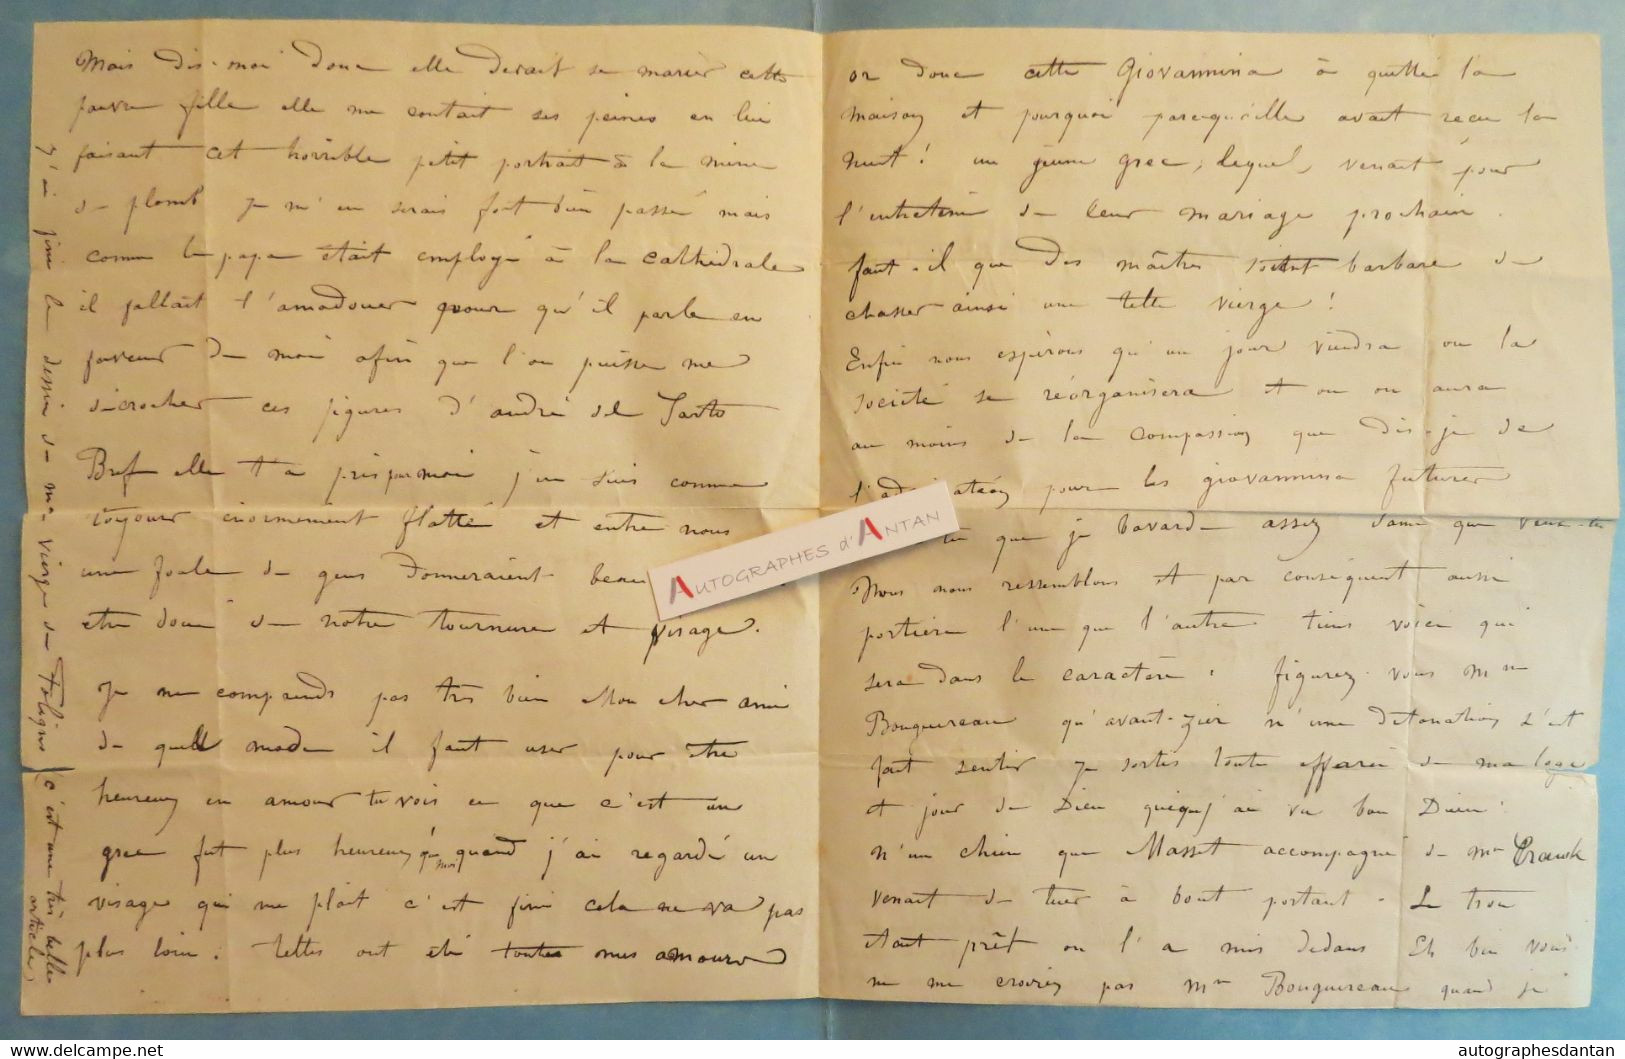 Mais dis-moi donc elle devait se marier cette
pauvre fille elle me contait ses peines en lui
faisant cet horrible petit portrait à la mine
de plomb je m'en serais fort bien passé mais
comme le papa était employé à la cathédrale
il fallait l'amadouer pour qu'il parle en
faveur de moi afin que l'on puisse me
décrocher ces figures d'andré del Sarto
Bref elle t'a pris pour moi j'en suis comme
toujours énormement flatté et entre nous
une foule de gens donneraient beau
être doué de notre tournure et visage.
Je ne comprends pas très bien Mon cher ami
de quell mode il faut user pour être
heureux en amour tu vois en que c'est un
grec fut plus heureux que moi quand j'ai regardé un
visage qui me plait c'est fini cela ne va pas
plus loin: telles ont été toutes mes amours
j'ai fini le dessin de ma vierge de Foligno (c'est une très belle
article)
or donc cette Giovannina à quitté la
maison et pourquoi parcequ'elle avait reçu la
nuit! un jeune grec, lequel, venait pour
l'entretenir de leur mariage prochain.
faut-il que des maîtres soient barbare de
chasser ainsi une telle vierge!
Enfin nous espérons qu'un jour viendra ou la
société se réorganisera et ou on aura
au moins de la compassion que dis-je de
l'ad ation pour les giovannina futures
tu que je bavarde assez dame que veux-tu
Nous nous ressemblons et par conséquent aussi
portière l'une que l'autre. tiens voici qui
sera dans le caractère: figurez-vous Mme
Bouguereau qu'avant-zier n'une détonation s'est
fait sentir je sortis toute effarée de ma loge
et jour de Dieu quéquej'ai vu bon Dieu!
n'un chien que Masset accompagné de mr Cranck
venait de tuer à bout portant. Le trou
était prêt on l'a mis dedans Eh bien vous
ne me croirez pas Mme Bouguereau quand je
AUTOGRAPHES d'ANTAN
autographesdantan